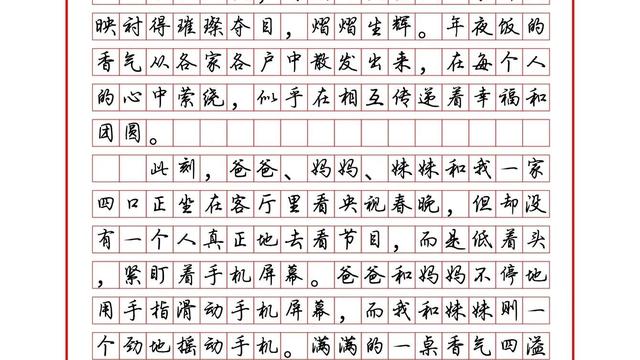 映衬得璀璨夺目，熠熠生辉。年夜饭的
香气从各家各户中散发出来，在每个人
的心中萦绕，似乎在相互传递着幸福和
团圆。
此刻，爸爸、妈妈、妹妹和我一家
四口正坐在客厅里看央视春晚，但却没
有一个人真正地去看节目，而是低着头
，紧盯着手机屏幕。爸爸和妈妈不停地
用手指滑动手机屏幕，而我和妹妹则一
个劲地摇动手机。满满的一桌香气四溢